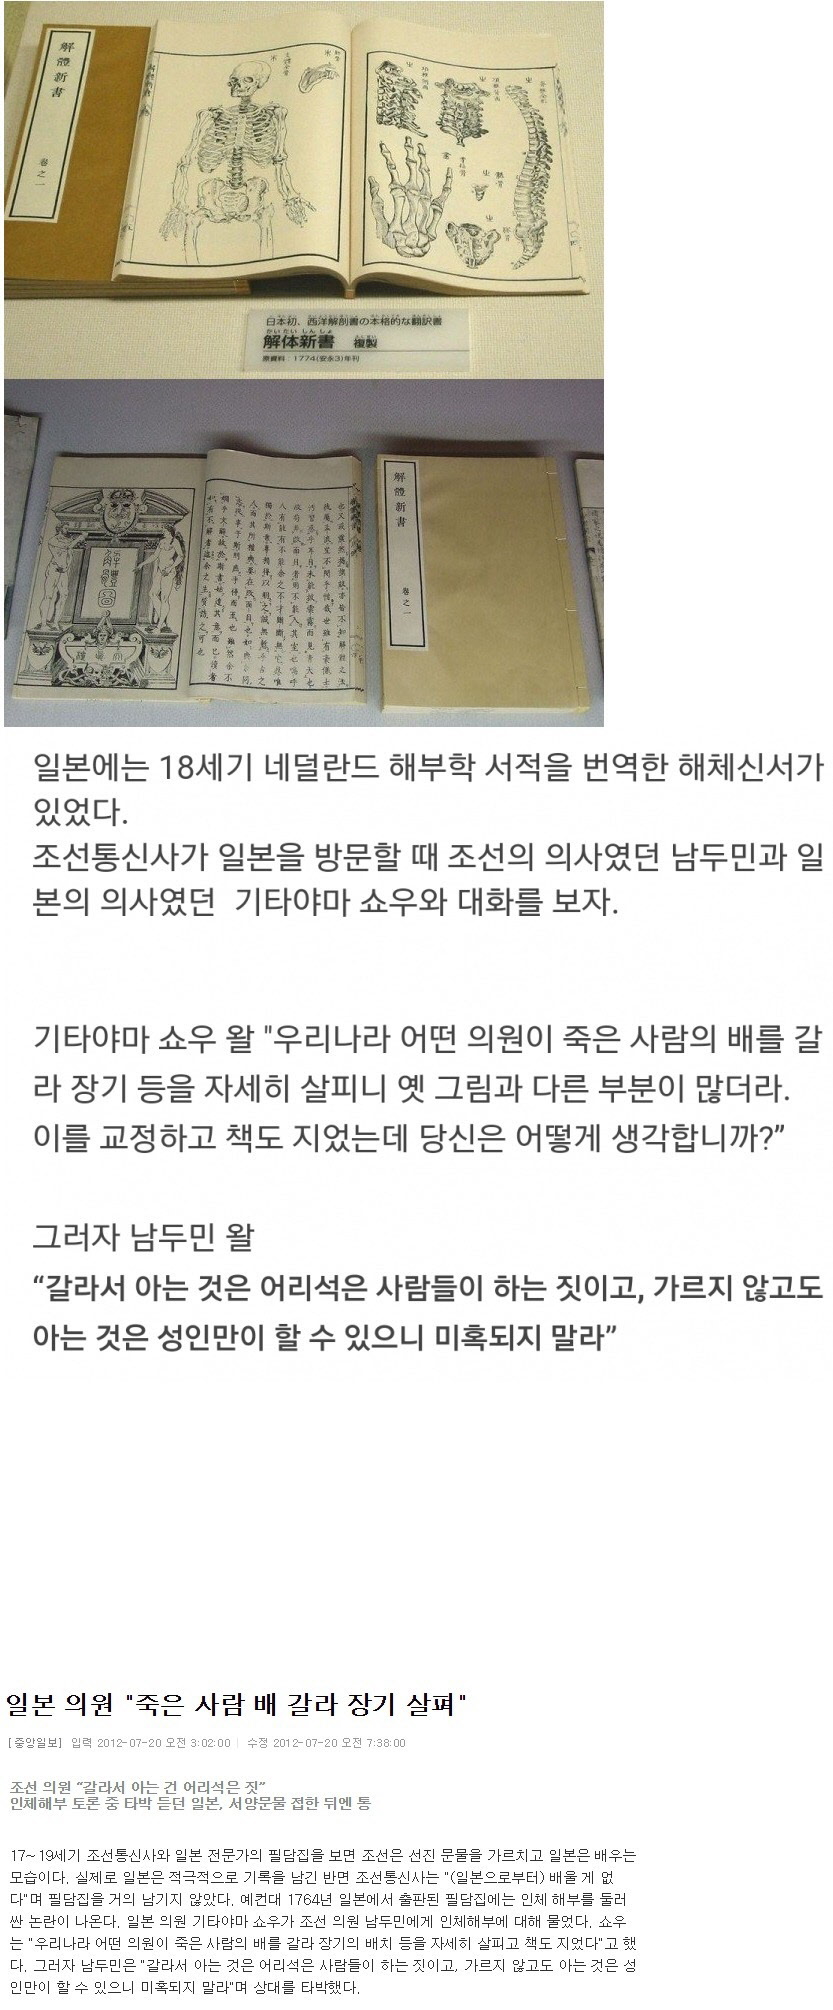 解體新書
卷之一
日本初、西洋解剖書の本格的な翻訳書
かいたいしんしょ
解体新書 複製
原資料：1774(安永3)年刊
解體新書
卷之一
일본에는 18세기 네덜란드 해부학 서적을 번역한 해체신서가
있었다.
조선통신사가 일본을 방문할 때 조선의 의사였던 남두민과 일
본의 의사였던 기타야마 쇼우와 대화를 보자.
기타야마 쇼우 왈 "우리나라 어떤 의원이 죽은 사람의 배를 갈
라 장기 등을 자세히 살피니 옛 그림과 다른 부분이 많더라.
이를 교정하고 책도 지었는데 당신은 어떻게 생각합니까?”
그러자 남두민 왈
“갈라서 아는 것은 어리석은 사람들이 하는 짓이고, 가르지 않고도
아는 것은 성인만이 할 수 있으니 미혹되지 말라”
일본 의원 "죽은 사람 배 갈라 장기 살펴"
[중앙일보] 입력 2012-07-20 오전 3:02:00 | 수정 2012-07-20 오전 7:38:00
조선 의원 “갈라서 아는 건 어리석은 짓”
인체해부 토론 중 타박 듣던 일본, 서양문물 접한 뒤엔 통
17~19세기 조선통신사와 일본 전문가의 필담집을 보면 조선은 선진 문물을 가르치고 일본은 배우는
모습이다. 실제로 일본은 적극적으로 기록을 남긴 반면 조선통신사는 "(일본으로부터) 배울 게 없
다"며 필담집을 거의 남기지 않았다. 예컨대 1764년 일본에서 출판된 필담집에는 인체 해부를 둘러
싼 논란이 나온다. 일본 의원 기타야마 쇼우가 조선 의원 남두민에게 인체해부에 대해 물었다. 쇼우
는 "우리나라 어떤 의원이 죽은 사람의 배를 갈라 장기의 배치 등을 자세히 살피고 책도 지었다"고 했
다. 그러자 남두민은 "갈라서 아는 것은 어리석은 사람들이 하는 짓이고, 가르지 않고도 아는 것은 성
인만이 할 수 있으니 미혹되지 말라"며 상대를 타박했다.